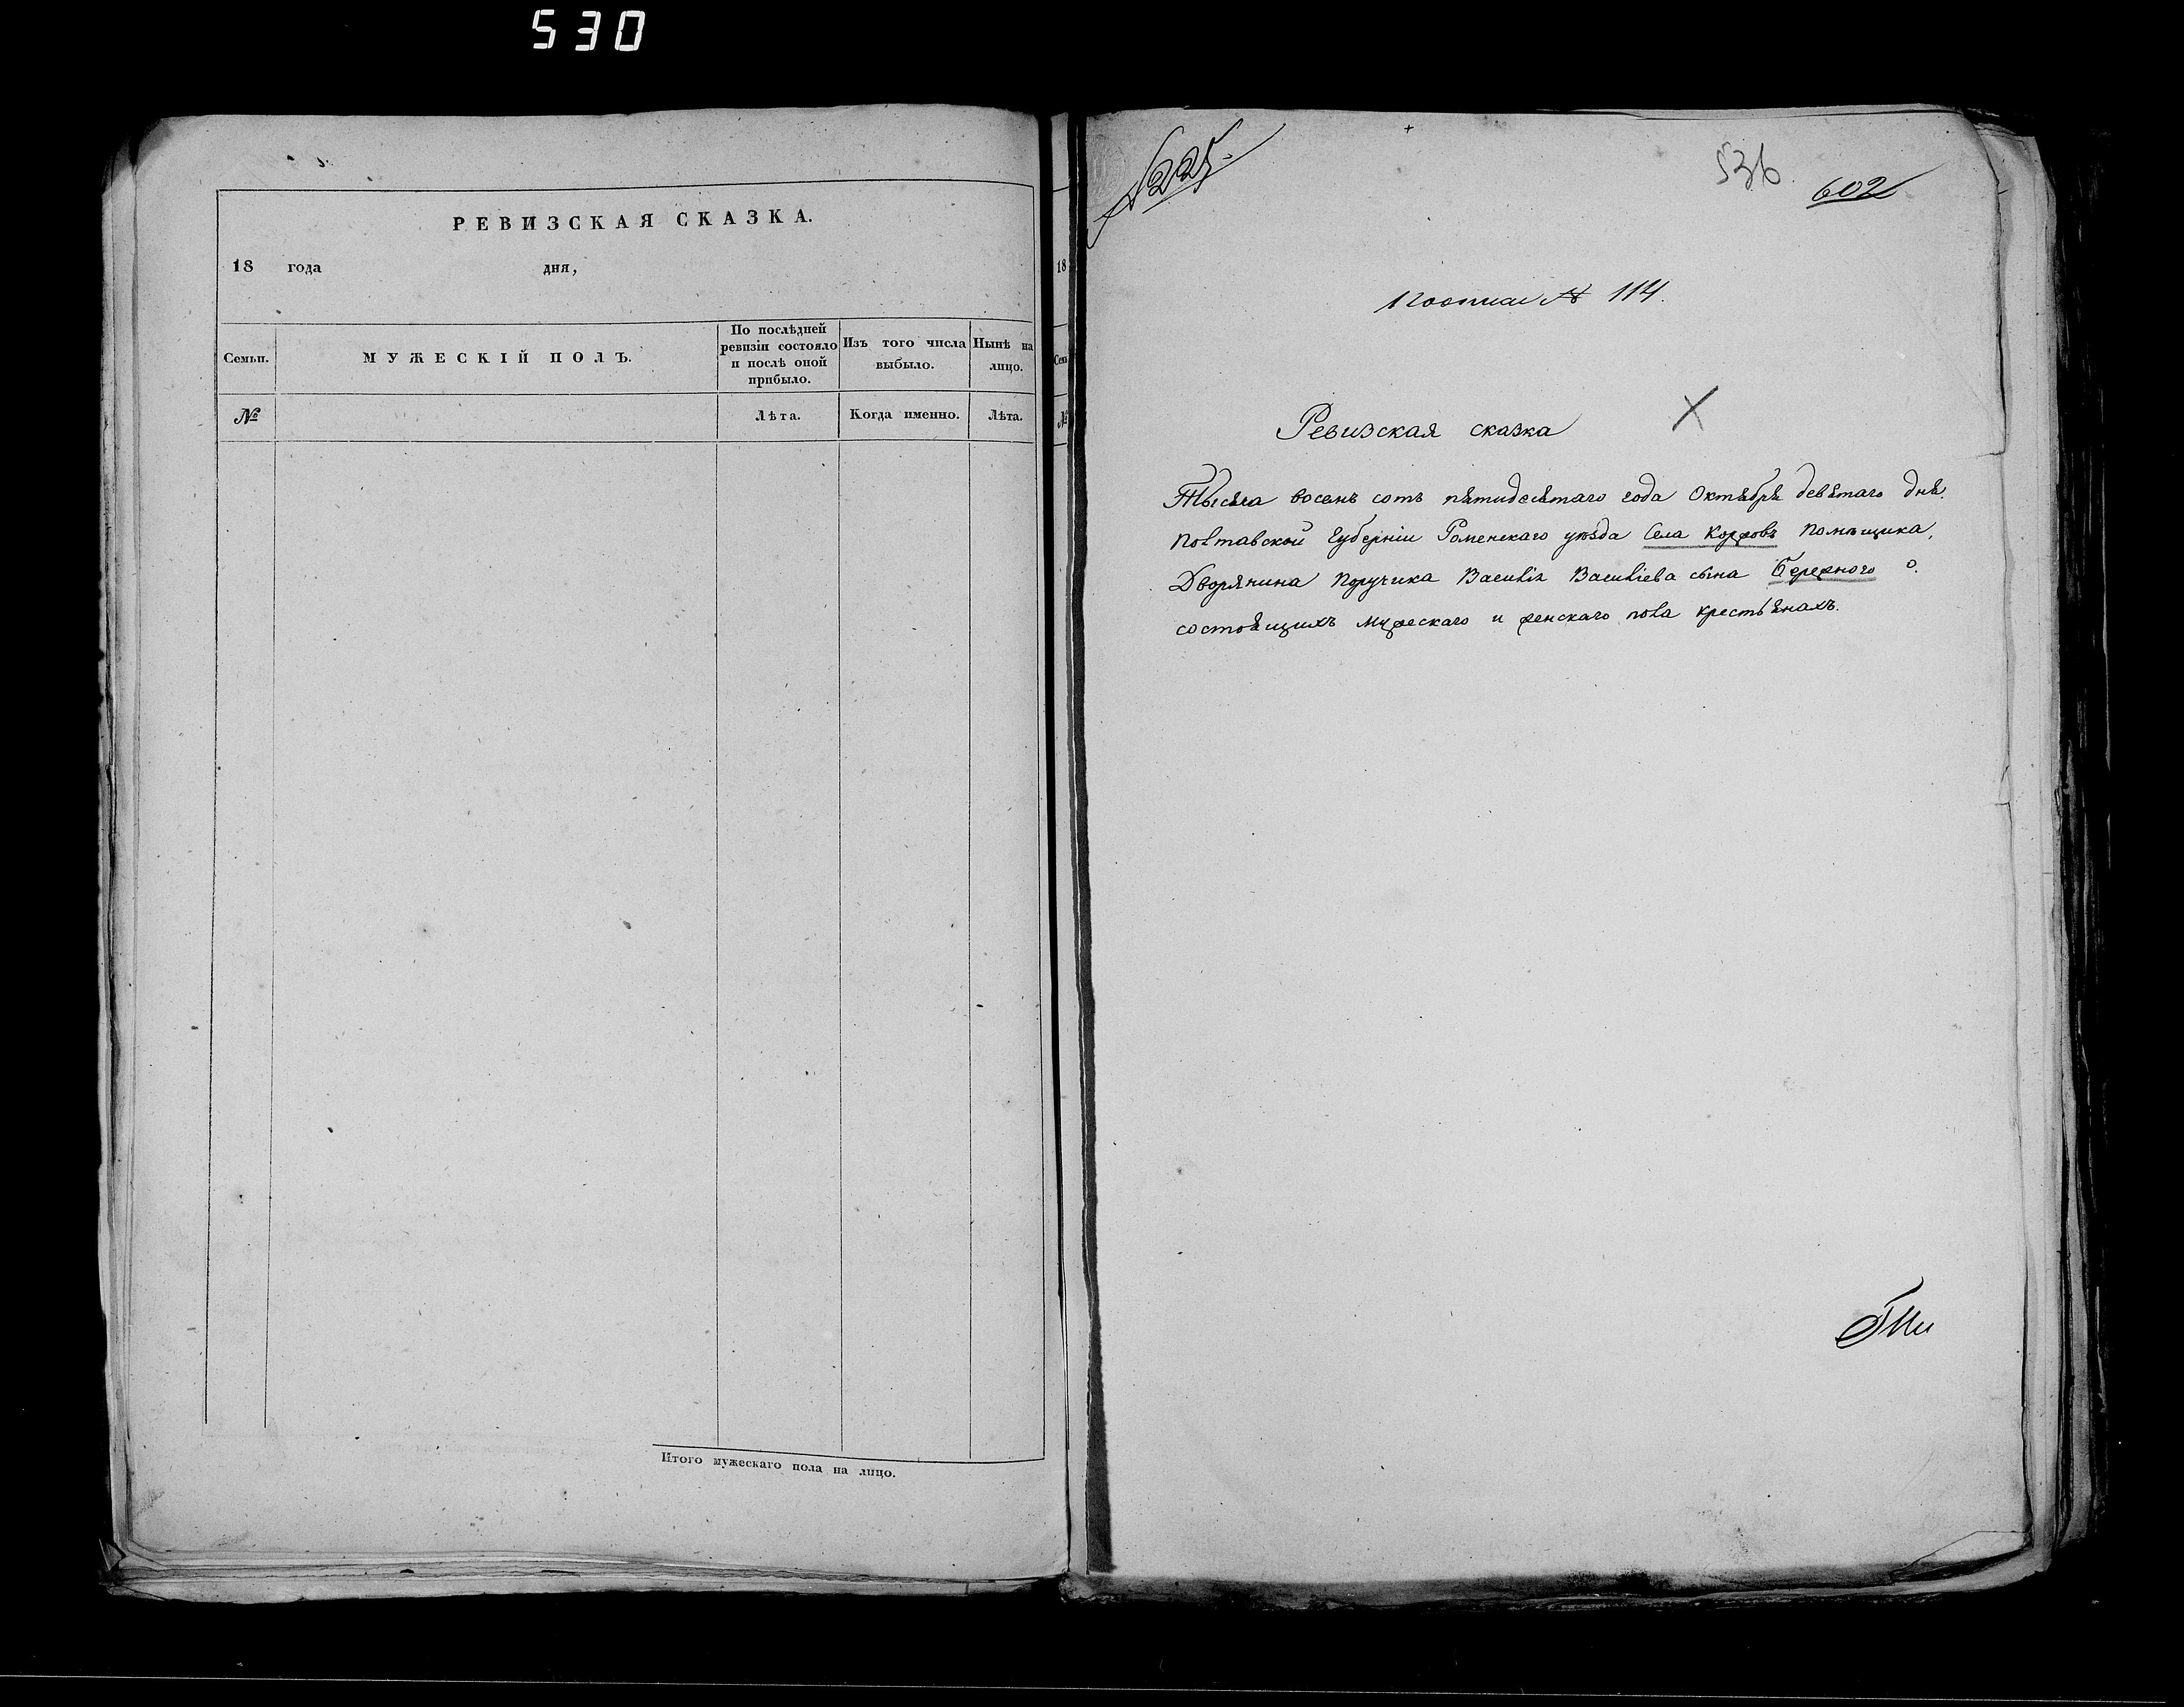 530
РЕВИЗСКАЯ СКАЗКА.
18 года дня,
Семьи.
МУЖЕСКІЙ ПОЛЪ.
По послѣдней ревизіи состояло и послѣ оной прибыло.
Изъ того числа выбыло.
Нынѣ на лицо.
№
Лѣта.
Когда именно.
Лѣта.
Итого мужескаго пола на лицо.
18
Сем
№
225.
536.
602
№ 114.
Ревизская сказка
Тысяча восемь сотъ пятидесятаго года Октября девятаго дня.
Полтавской Губерніи Роменскаго уѣзда Села Коржовъ Помѣщика,
Дворянина Поручика Василія Васильева сына Бережного о
состоящихъ мужескаго и женскаго пола крестьянахъ.